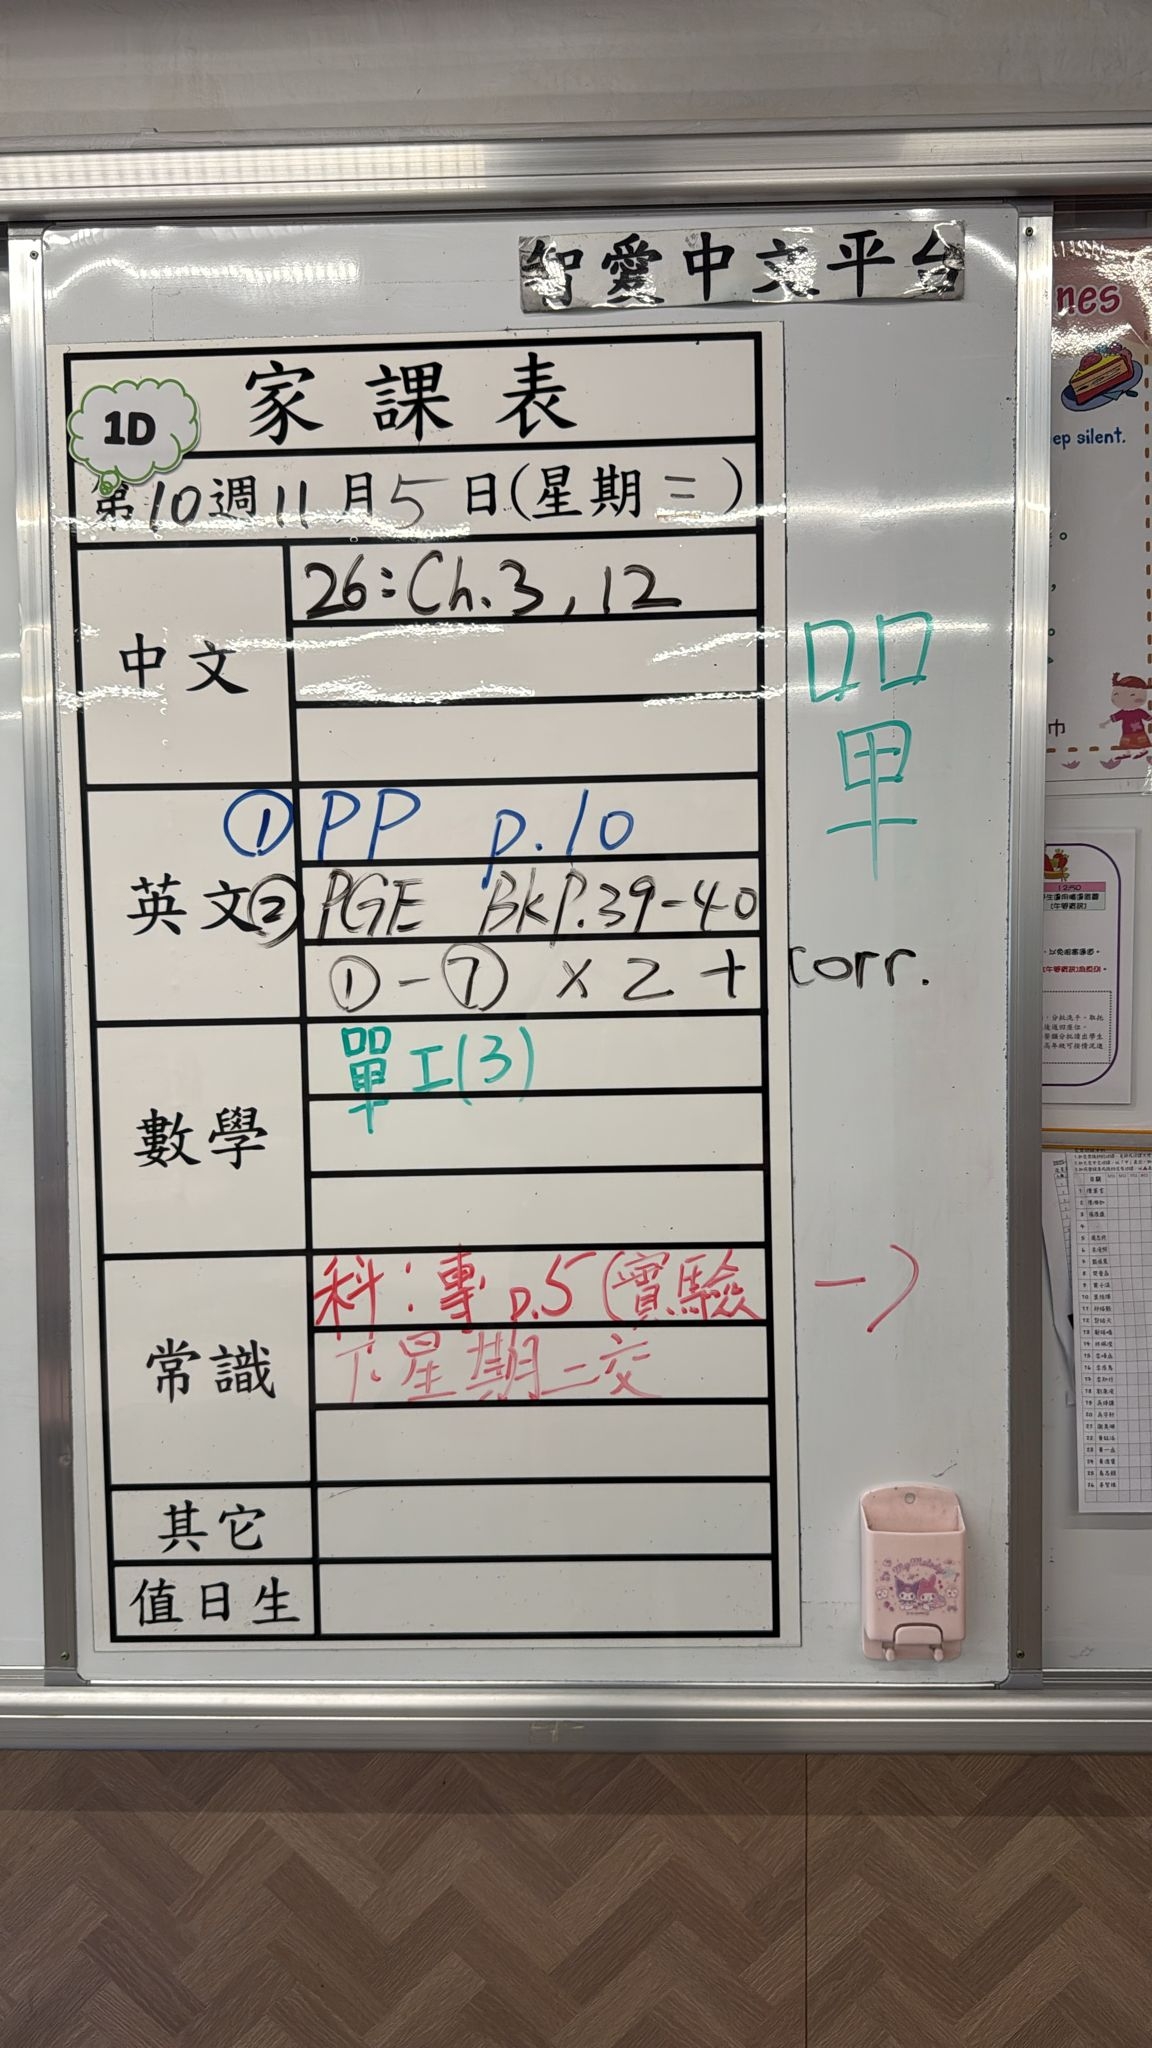 智愛中文平台
家課表
1D
第10週11月5日(星期三)
中文
26:Ch.3, 12
英文
① PP p.10
② PGE BkP.39-40
①-⑦ x2 + corr.
數學
單工(3)
單
常識
科:專p.5(實驗一)
下星期二交
其它
值日生
nes
ep silent.
巾
12:50
日期